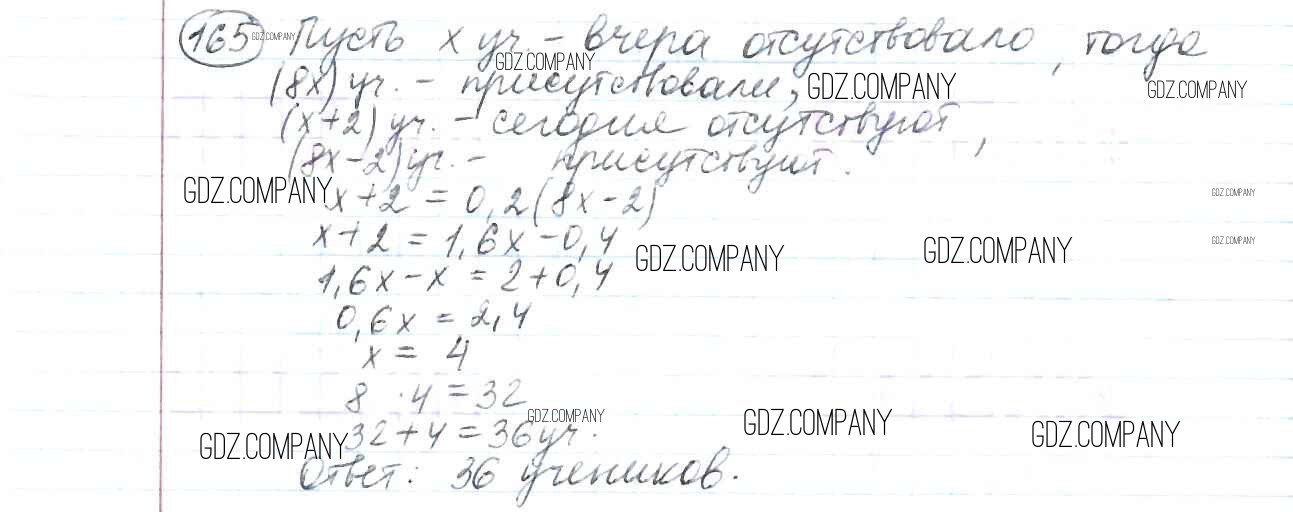 165 Пусть x уч. - вчера отсутствовало, тогда
(8x) уч. - присутствовали,
(x+2) уч. - сегодня отсутствуют,
(8x-2) уч. - присутствуют.
x+2 = 0,2(8x-2)
x+2 = 1,6x-0,4
1,6x-x = 2+0,4
0,6x = 2,4
x = 4
8 · 4 = 32
32+4 = 36 уч.
Ответ: 36 учеников.
GDZ.COMPANY
GDZ.COMPANY
GDZ.COMPANY
GDZ.COMPANY
GDZ.COMPANY
GDZ.COMPANY
GDZ.COMPANY
GDZ.COMPANY
GDZ.COMPANY
GDZ.COMPANY
GDZ.COMPANY
GDZ.COMPANY
GDZ.COMPANY